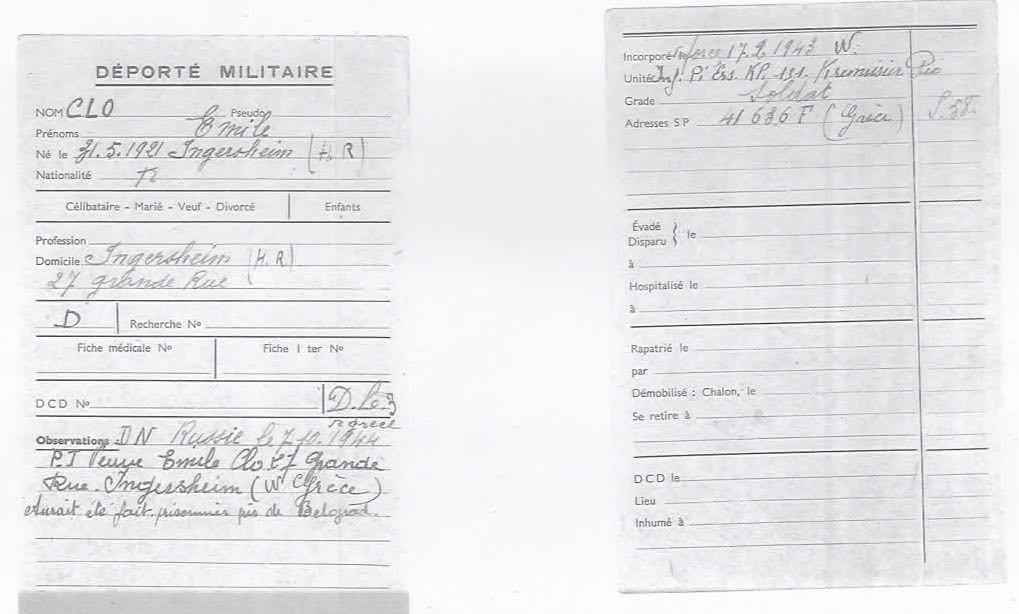 DÉPORTÉ MILITAIRE
NOM CLO Pseudo
Prénoms Emile
Né le 31.5.1921 Ingersheim (H.R)
Nationalité
Célibataire - Marié - Veuf - Divorcé Enfants
Profession
Domicile Ingersheim (H.R)
27 grande Rue
D Recherche Nº
Fiche médicale Nº Fiche I ter Nº
DCD Nº D.
Observations :DN Russie le 7.10.1944
P.J Emile Clo 27 Grande
Rue. Ingersheim (W Grèce)
Aurait été fait prisonnier près de Belgrad.
Incorporé force 17.2.1943 W.
Unité Inf. Pi Ers. KP. 151.
Grade Soldat
Adresses SP 41636 F (Grèce)
Évadé
Disparu } le
à
Hospitalisé le
à
Rapatrié le
par
Démobilisé : Chalon, le
Se retire à
DCD le
Lieu
Inhumé à